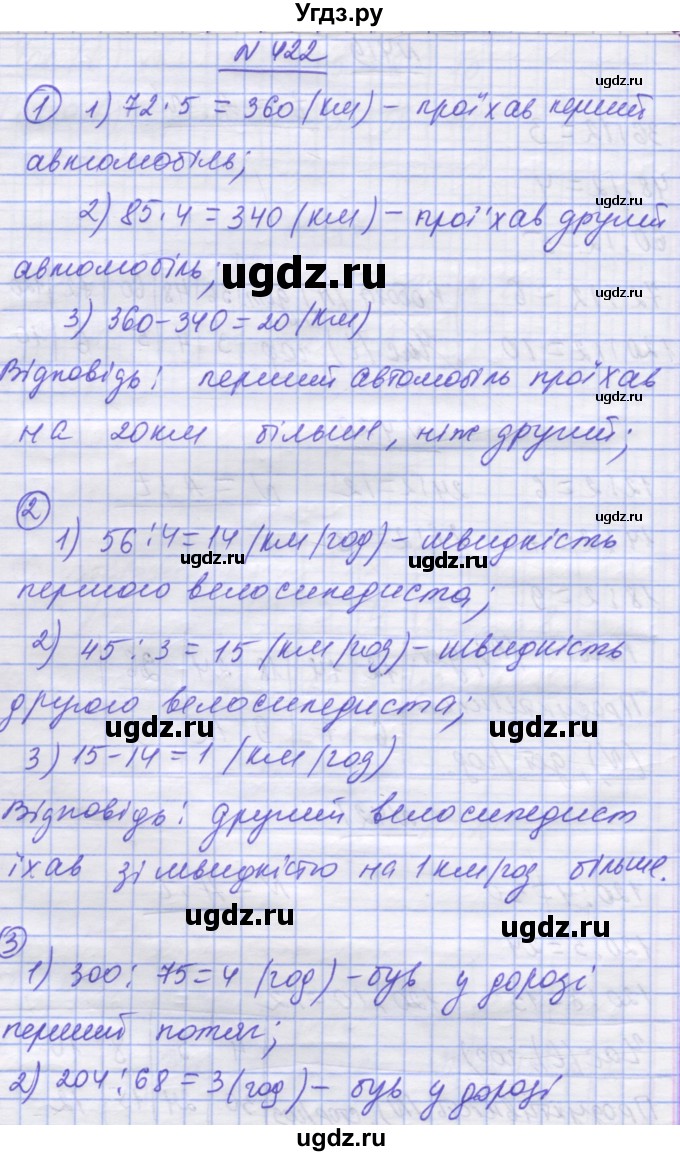 Угдз.ру
N 422
① 1) 72·5 = 360 (км) – проїхав перший
автомобіль;
2) 85·4 = 340 (км) – проїхав другий
автомобіль;
3) 360–340=20 (км)
Відповідь: перший автомобіль проїхав
на 20 км більше, ніж другий;
②
1) 56:4=14 (км/год) – швидкість
першого велосипедиста;
2) 45:3=15 (км/год) – швидкість
другого велосипедиста;
3) 15–14=1 (км/год)
Відповідь: другий велосипедист
їхав зі швидкістю на 1 км/год більше.
③
1) 300:75=4 (год) – був у дорозі
перший потяг;
2) 204:68=3 (год) – був у дорозі
ugdz.ru